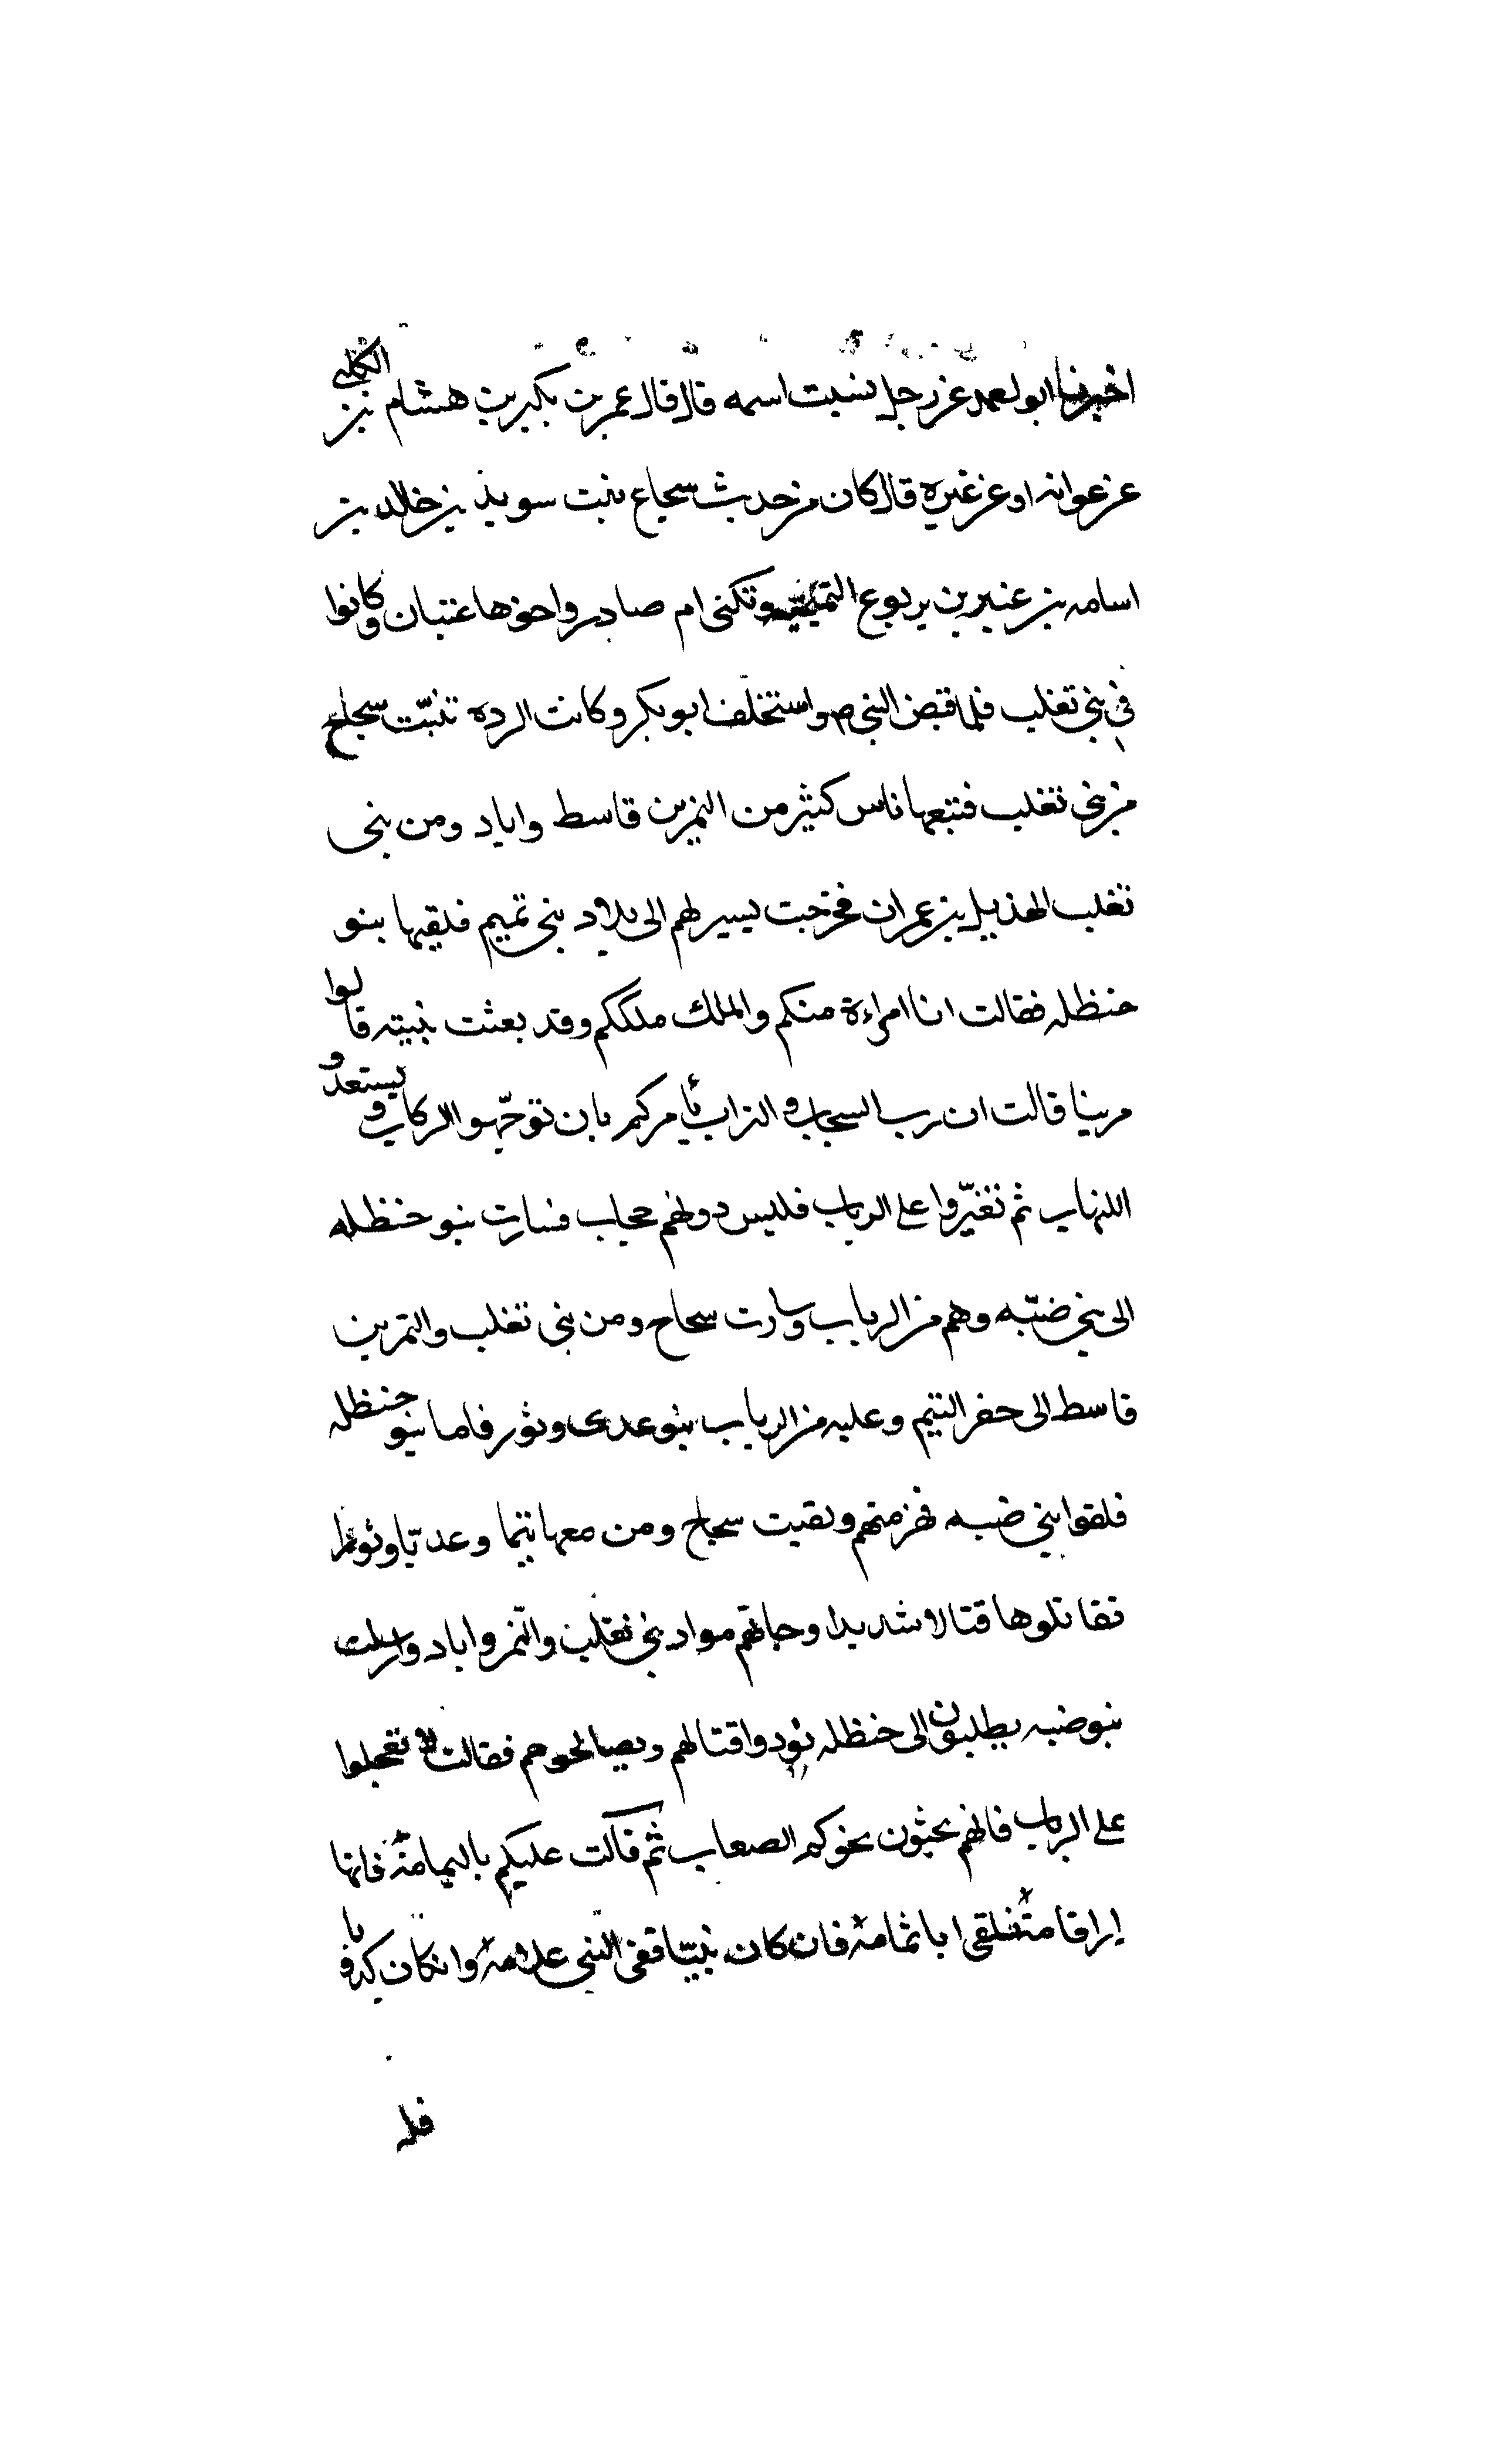 اخبرنا ابو احمد عن رجل نسيت اسمه قال قال عمر بن بكير بن هشام بن الكلبي
عن عوانه او عن غيره قال كان من حديث سجاع بنت سويد بن خالد بن
اسامه بن عنبر بن يربوع التميميه وتكنى ام صادر واخوها عتبان وكانوا
في بني تغلب فلما قبض النبي ص واستخلف ابو بكر وكانت الرده تنبّت سجاح
من بني تغلب فتبعها ناس كثير من النمر بن قاسط واياد ومن بنى
تغلب الهذيل بن عمران فخرجت يسير لهم الى بلاد بنى تميم فلقيها بنو
حنظله فقالت انا امراءة منكم والملك ملككم وقد بعثت نبيته قالوا
مرينا قالت ان رب السحاب والتراب يأمركم بان توجّهوا الركاب ويستعدو
اللنهاب ثم تغيّروا على الرباب فليس دونهم حجاب فسارت بنو حنظله
الى بني ضبّه وهم من الرباب وسارت سجاح ومن بني تغلب والنمر بن
قاسط الى حفر التيم وعليه من الرباب بنو عدى وثور فاما بنو حنظله
فلقوا بني ضبه فهزمتهم ولقيت سجاح ومن معها تيما وعديّا وثورا
فقاتلوها قتالا شديدا وجاتهم مواد بني تغلب والنّمر واياد وارسلت
بنو ضبه يطلبون الى حنظله يودوا قتالهم ويصالحوهم فقالت لا تعجلوا
على الرباب فانهم يحثون نحوكم الصعاب ثم قالت عليكم باليمامة فانها
دار اقامة فنلقى ابا ثمامة فان كان نبيّا ففي النبي علامة وان كان كذوبا
فله